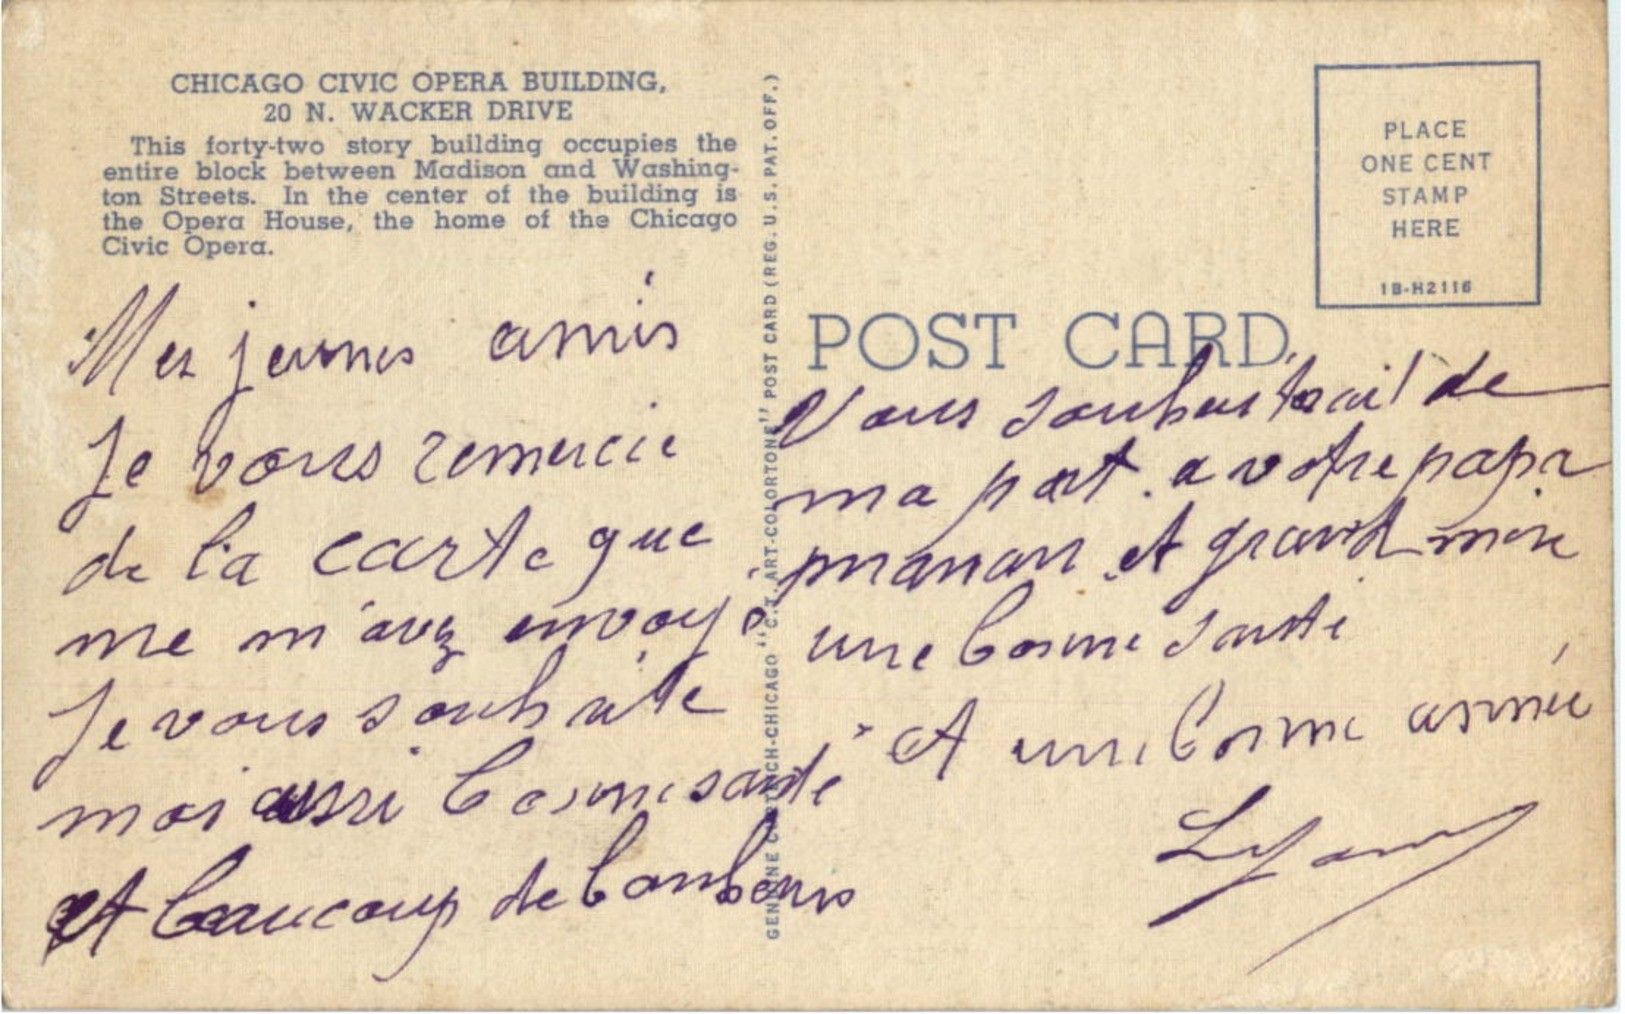 CHICAGO CIVIC OPERA BUILDING,
20 N. WACKER DRIVE
This forty-two story building occupies the
entire block between Madison and Washing-
ton Streets. In the center of the building is
the Opera House, the home of the Chicago
Civic Opera.
Mes jeunes amis
Je vous remercie
de la carte que
me m'avez envoyé
Je vous souhaite
moi aussi bonne santé
et beaucoup de bonbons
GENUINE CURTEICH-CHICAGO "C.T. ART-COLORTONE" POST CARD (REG. U.S. PAT. OFF.)
PLACE
ONE CENT
STAMP
HERE
1B-H2116
POST CARD
Vous de
ma part a votre papa
maman et grand mère
une bonne santé
et une bonne année